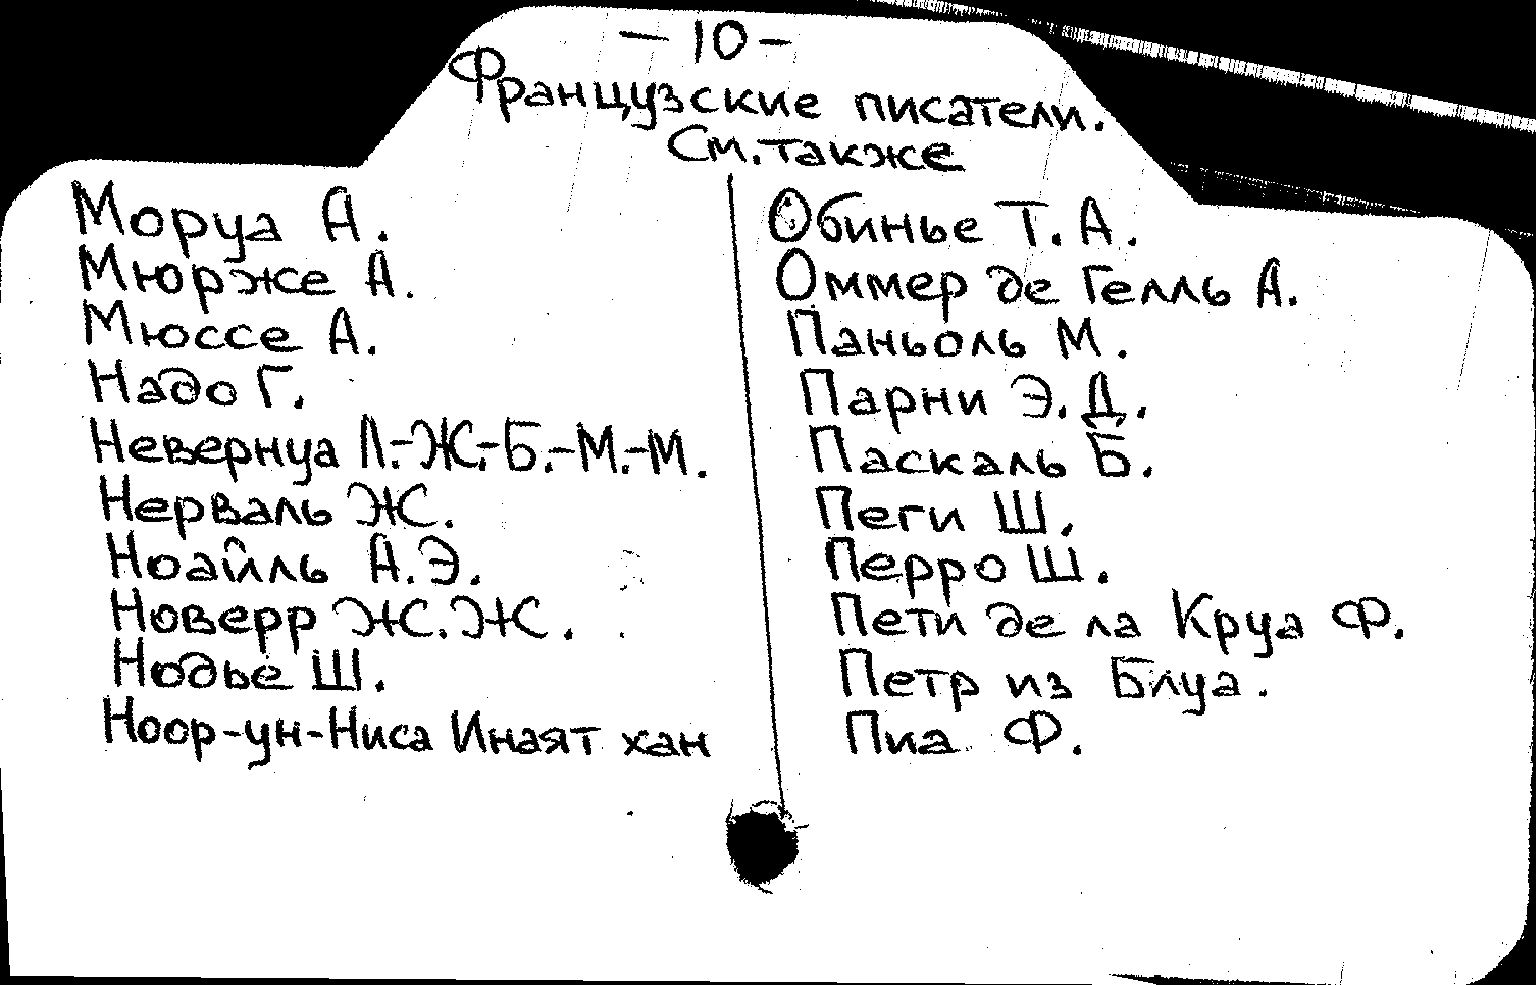 — 10 —
Французские писатели.
См. также
Моруа А.
Мюрже А.
Мюссе А.
Надо Г.
Невернуа Л.-Ж.-Б.-М.-М.
Нерваль Ж.
Ноайль А.Э.
Новерр Ж.Ж.
Нодье Ш.
Ноор-ун-Ниса Инаят хан
Обинье Т. А.
Оммер де Гелль А.
Паньоль М.
Парни Э. Д.
Паскаль Б.
Пеги Ш.
Перро Ш.
Пети де ла Круа Ф.
Петр из Блуа.
Пиа Ф.